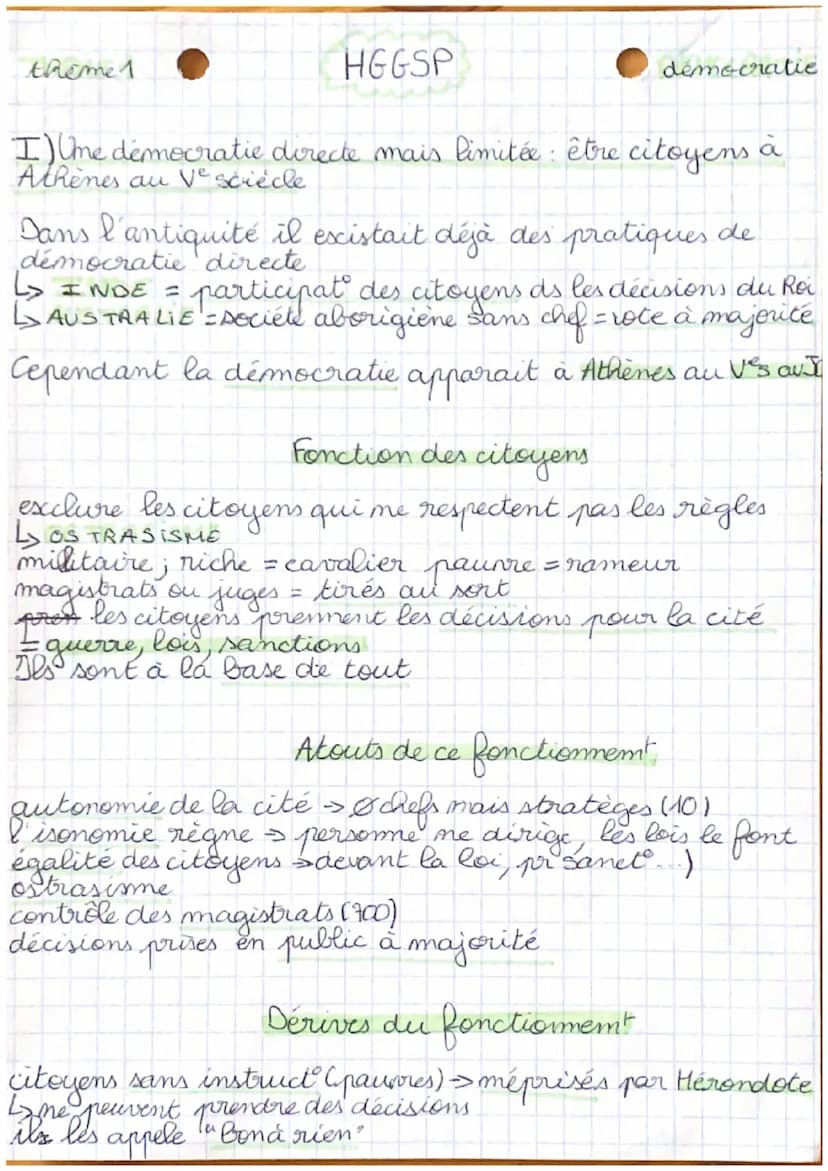 thème 1 HGGSP démocratie
I) Une démocratie directe mais limitée : être citoyens à
Athènes au Ve sciècle
Dans l'antiquité il escistait déjà des pratiques de
démocratie directe
↳ INDE = participat° des citoyens ds les décisions du Roi
↳ AUSTRALIE = société aborigiène sans chef = vote à majorité
Cependant la démocratie apparait à Athènes au Ve s
Fonction des citoyens
exclure les citoyens qui ne respectent pas les règles
↳ OSTRASISME
militaire ; riche = cavalier pauvre = rameur
magistrats ou juges = tirés au sort
les citoyens prennent les décisions pour la cité
= guerre, lois, sanctions
Ils sont à la base de tout
Atouts de ce fonctionnemt
autonomie de la cité → ø chefs mais stratèges (10)
l'isonomie règne → personne ne dirige, les lois le font
égalité des citoyens → devant la loi, pr sanct°...)
ostrasisme
contrôle des magistrats (700)
décisions prises en public à majorité
Dérives du fonctionnemt
citoyens sans instruct° (pauvres) → méprisés par Hérondote
↳ ne peuvent prendre des décisions
les appele "bon à rien"